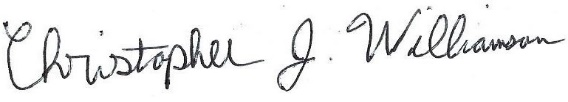 Christopher J. Williamson